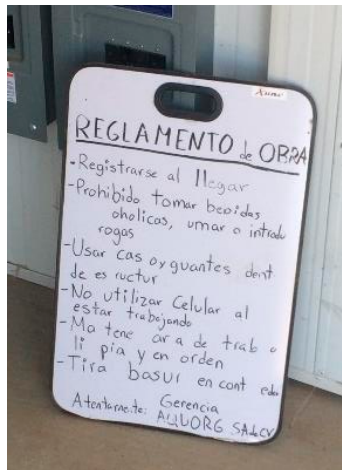 REGLAMENTO de OBRA
- Registrarse al llegar
- Prohibido tomar bebidas
oholicas, umar o introdu
rogas
- Usar cas o y guantes dent
de es ructur
- No utilizar Celular al
estar trabajando
- Ma tene ar a de trab o
li pia y en orden
- Tira basur en cont edo
Atentamente: Gerencia
AQUORG SA de CV